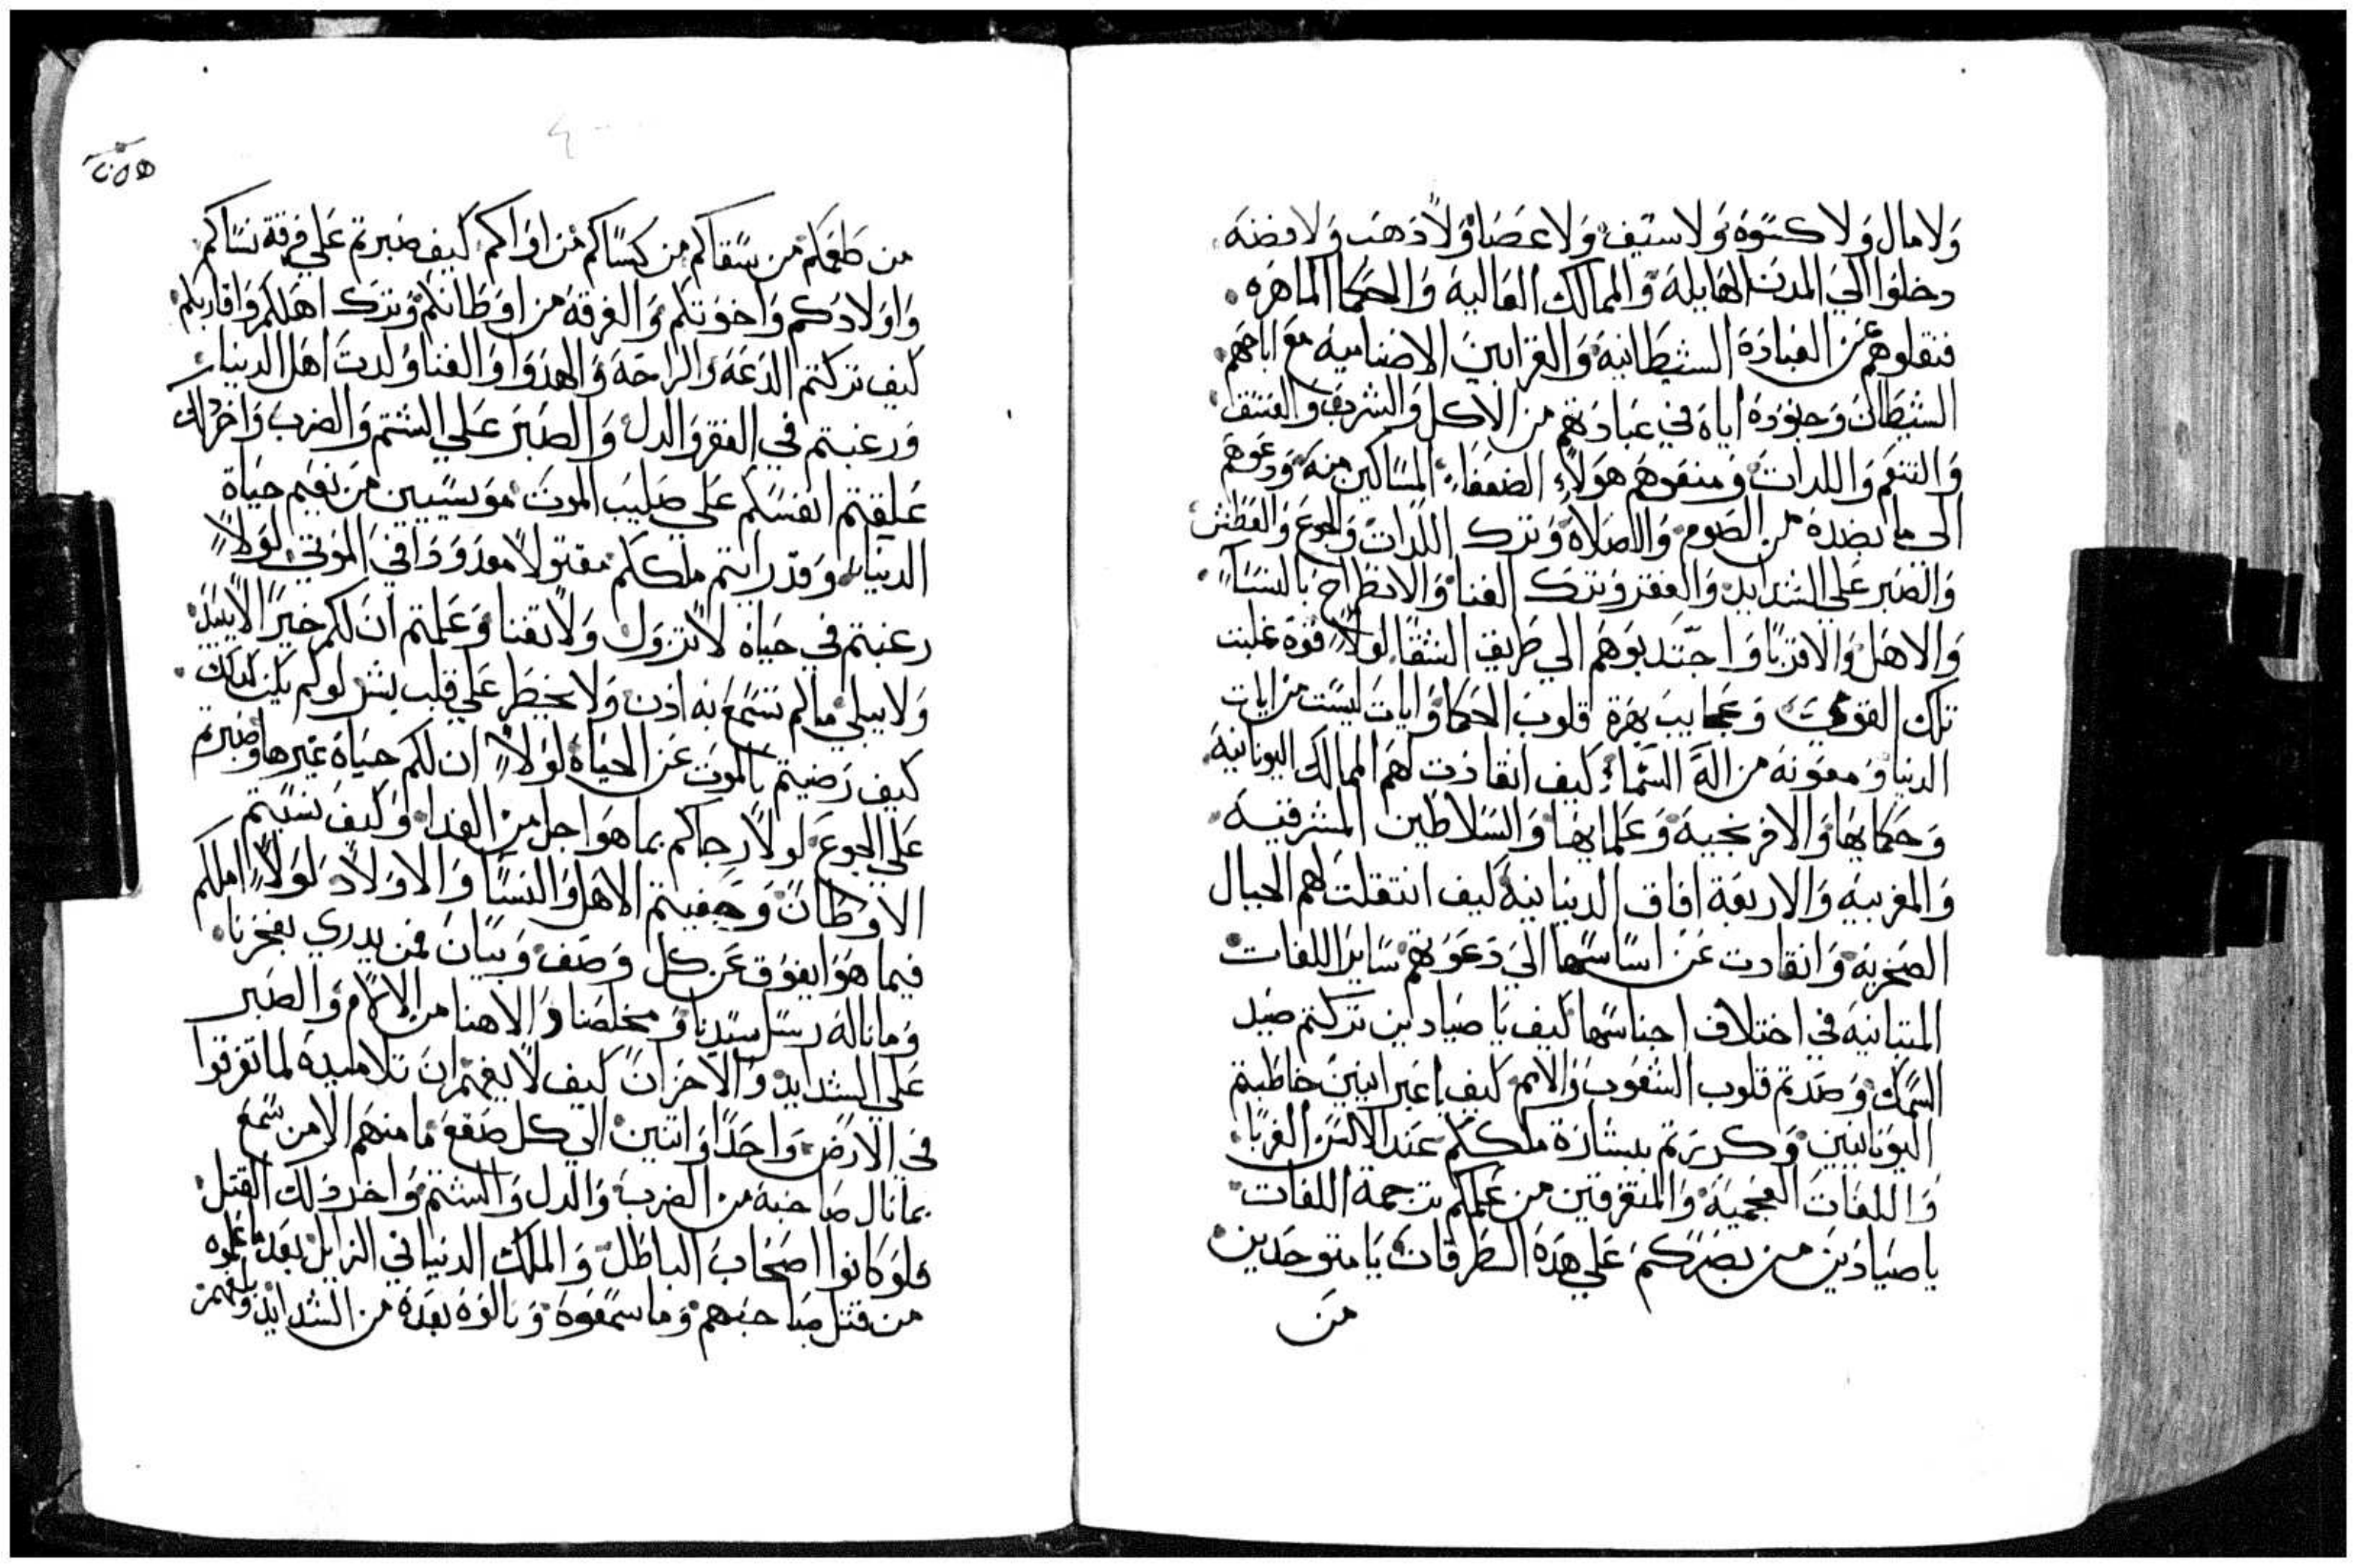 ولا مال ولا كسوه ولا سيف ولا عصا ولا دهب ولا فضه
دخلوا الي المدن الهايله والممالك العاليه والحكما الماهره
فنقلوهم عن العباده الشيطانيه والقرابين الاصناميه مع اباحهم
الشيطان وجنوده اياه في عبادتهم من الاكل والشرب والفسق
والتنعم واللدات ومنعوهم هولاء الضعفا المساكين منه ودعوهم
الى ما يضده من الصوم والصلاه وترك اللدات والجوع والعطش
والصبر علي الشدايد والفقر وترك الغنا والانطراح بالنسا
والاهل والاقربا واجتدبوهم الي طريق الشقا لولا قوه غلبت
تلك القوي وعجايب بهرة قلوب الحكما وايات ليست من ايات
الدنيا ومعونه من اله السماء كيف انقادت لهم الممالك اليونانيه
وحكمايها والافرنجيه وعلمايها والسلاطين المشرقيه
والمغربيه والاربعة افاق الدنيانيه كيف انتقلت لهم الجبال
الصخريه وانقادت عن اساسها الي دعوتهم ساير اللغات
المتباينه في اختلاف اجناسها كيف يا صيادين تركتم صيد
السمك وصدتم قلوب الشعوب والامم كيف يا عبرانيين خاطبتم
اليونانيين وكررتم ببشارة ملككم عند الالسن الغربا
واللغات العجميه والمتفرقين من علمكم ترجمة اللغات
يا صيادين من بصركم علي هذه الطرقات يا متوحدين
من
من طعمكم من سقاكم من كساكم من اواكم كيف صبرتم علي فرقة نساكم
واولادكم واخوتكم والغرقه من اوطانكم وترك اهلكم واقاربكم
كيف تركتم الدعه والراحه والهدوا والغنا ولدت اهل الدنيا
ورغبتم في الفقر والدل والصبر علي الشتم والضرب واخر دلك
علقتم انفسكم علي صليب الموت مويسيين من نعيم حياة
الدنيا وقد رايتم ملككم مقتولا معدودا في الموتي لولا
رغبتم في حياه لا تزول ولا تفنا وعلمتم ان لكم خيرا لا يبيد
ولا يبلي ما لم تسمع به ادن ولا يخطر علي قلب بشر لو لم يكن كدلك
كيف رضيتم بالموت عن الحياه لولا ان لكم حياة غيرها وصبرتم
علي الجوع لولا رجاكم بما هو اجل من الغدا وكيف نسيتم
الاوطان وجفيتم الاهل والنسا والاولاد لولا املكم
فيما هوا يفوق عن كل وصف وبيان فمن يدري بفخرنا
وما ناله رسل سيدنا ومخلصنا والاهنا من الالام والصبر
علي الشدايد والاحزان كيف لا يفهم ان تلاميده لما تفرقوا
في الارض واحدا واتنين الي كل صقع ما منهم الا من سمع
بما نال صاحبه من الضرب والدل والشتم واخر دلك القتل
فلو كانوا اصحاب الباطل والملك الدنياني الزايل بعد ما علموه
من قتل صاحبهم وما سمعوه ونالوه بعده من الشدايد